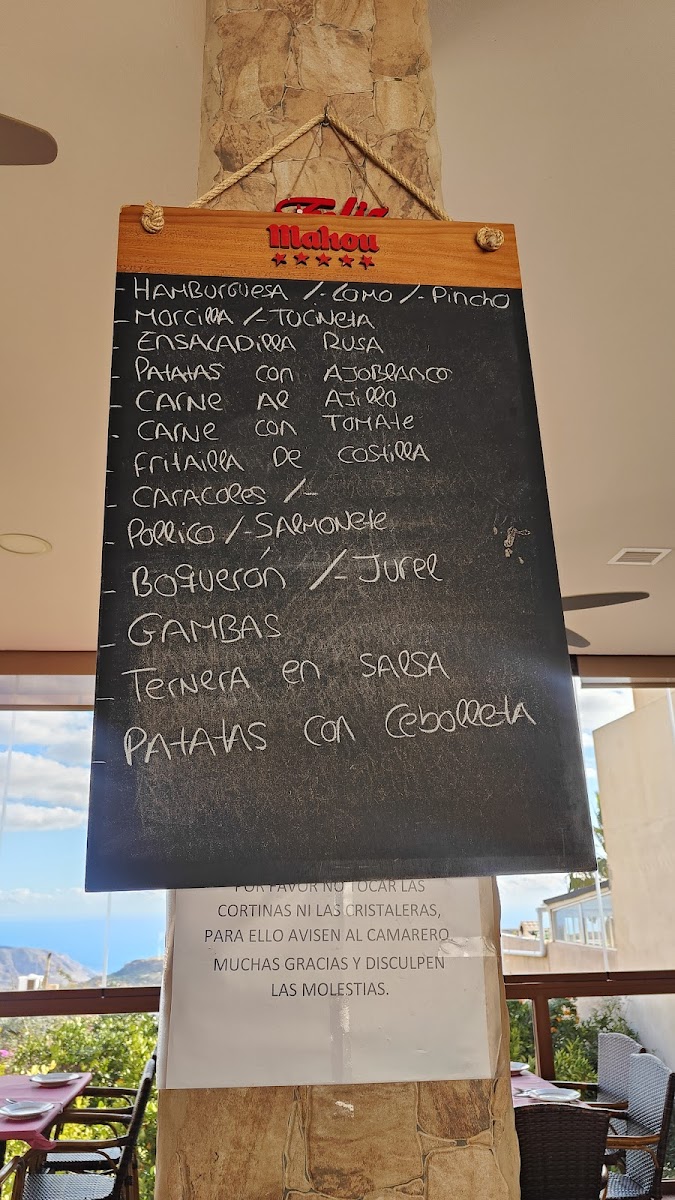 Feliz
Mahou
- HAMBURGUESA /- LOMO /- PINCHO
- MORCILLA /- TOCINETA
- ENSALADILLA RUSA
- PATATAS CON AJOBLANCO
- CARNE AL AJILLO
- CARNE CON TOMATE
- FRITAILLA DE COSTILLA
- CARACOLES /-
- POLLICO /- SALMONETE
- BOQUERÓN /- JUREL
- GAMBAS
- TERNERA EN SALSA
- PATATAS CON CEBOLLETA
POR FAVOR NO TOCAR LAS
CORTINAS NI LAS CRISTALERAS,
PARA ELLO AVISEN AL CAMARERO
MUCHAS GRACIAS Y DISCULPEN
LAS MOLESTIAS.